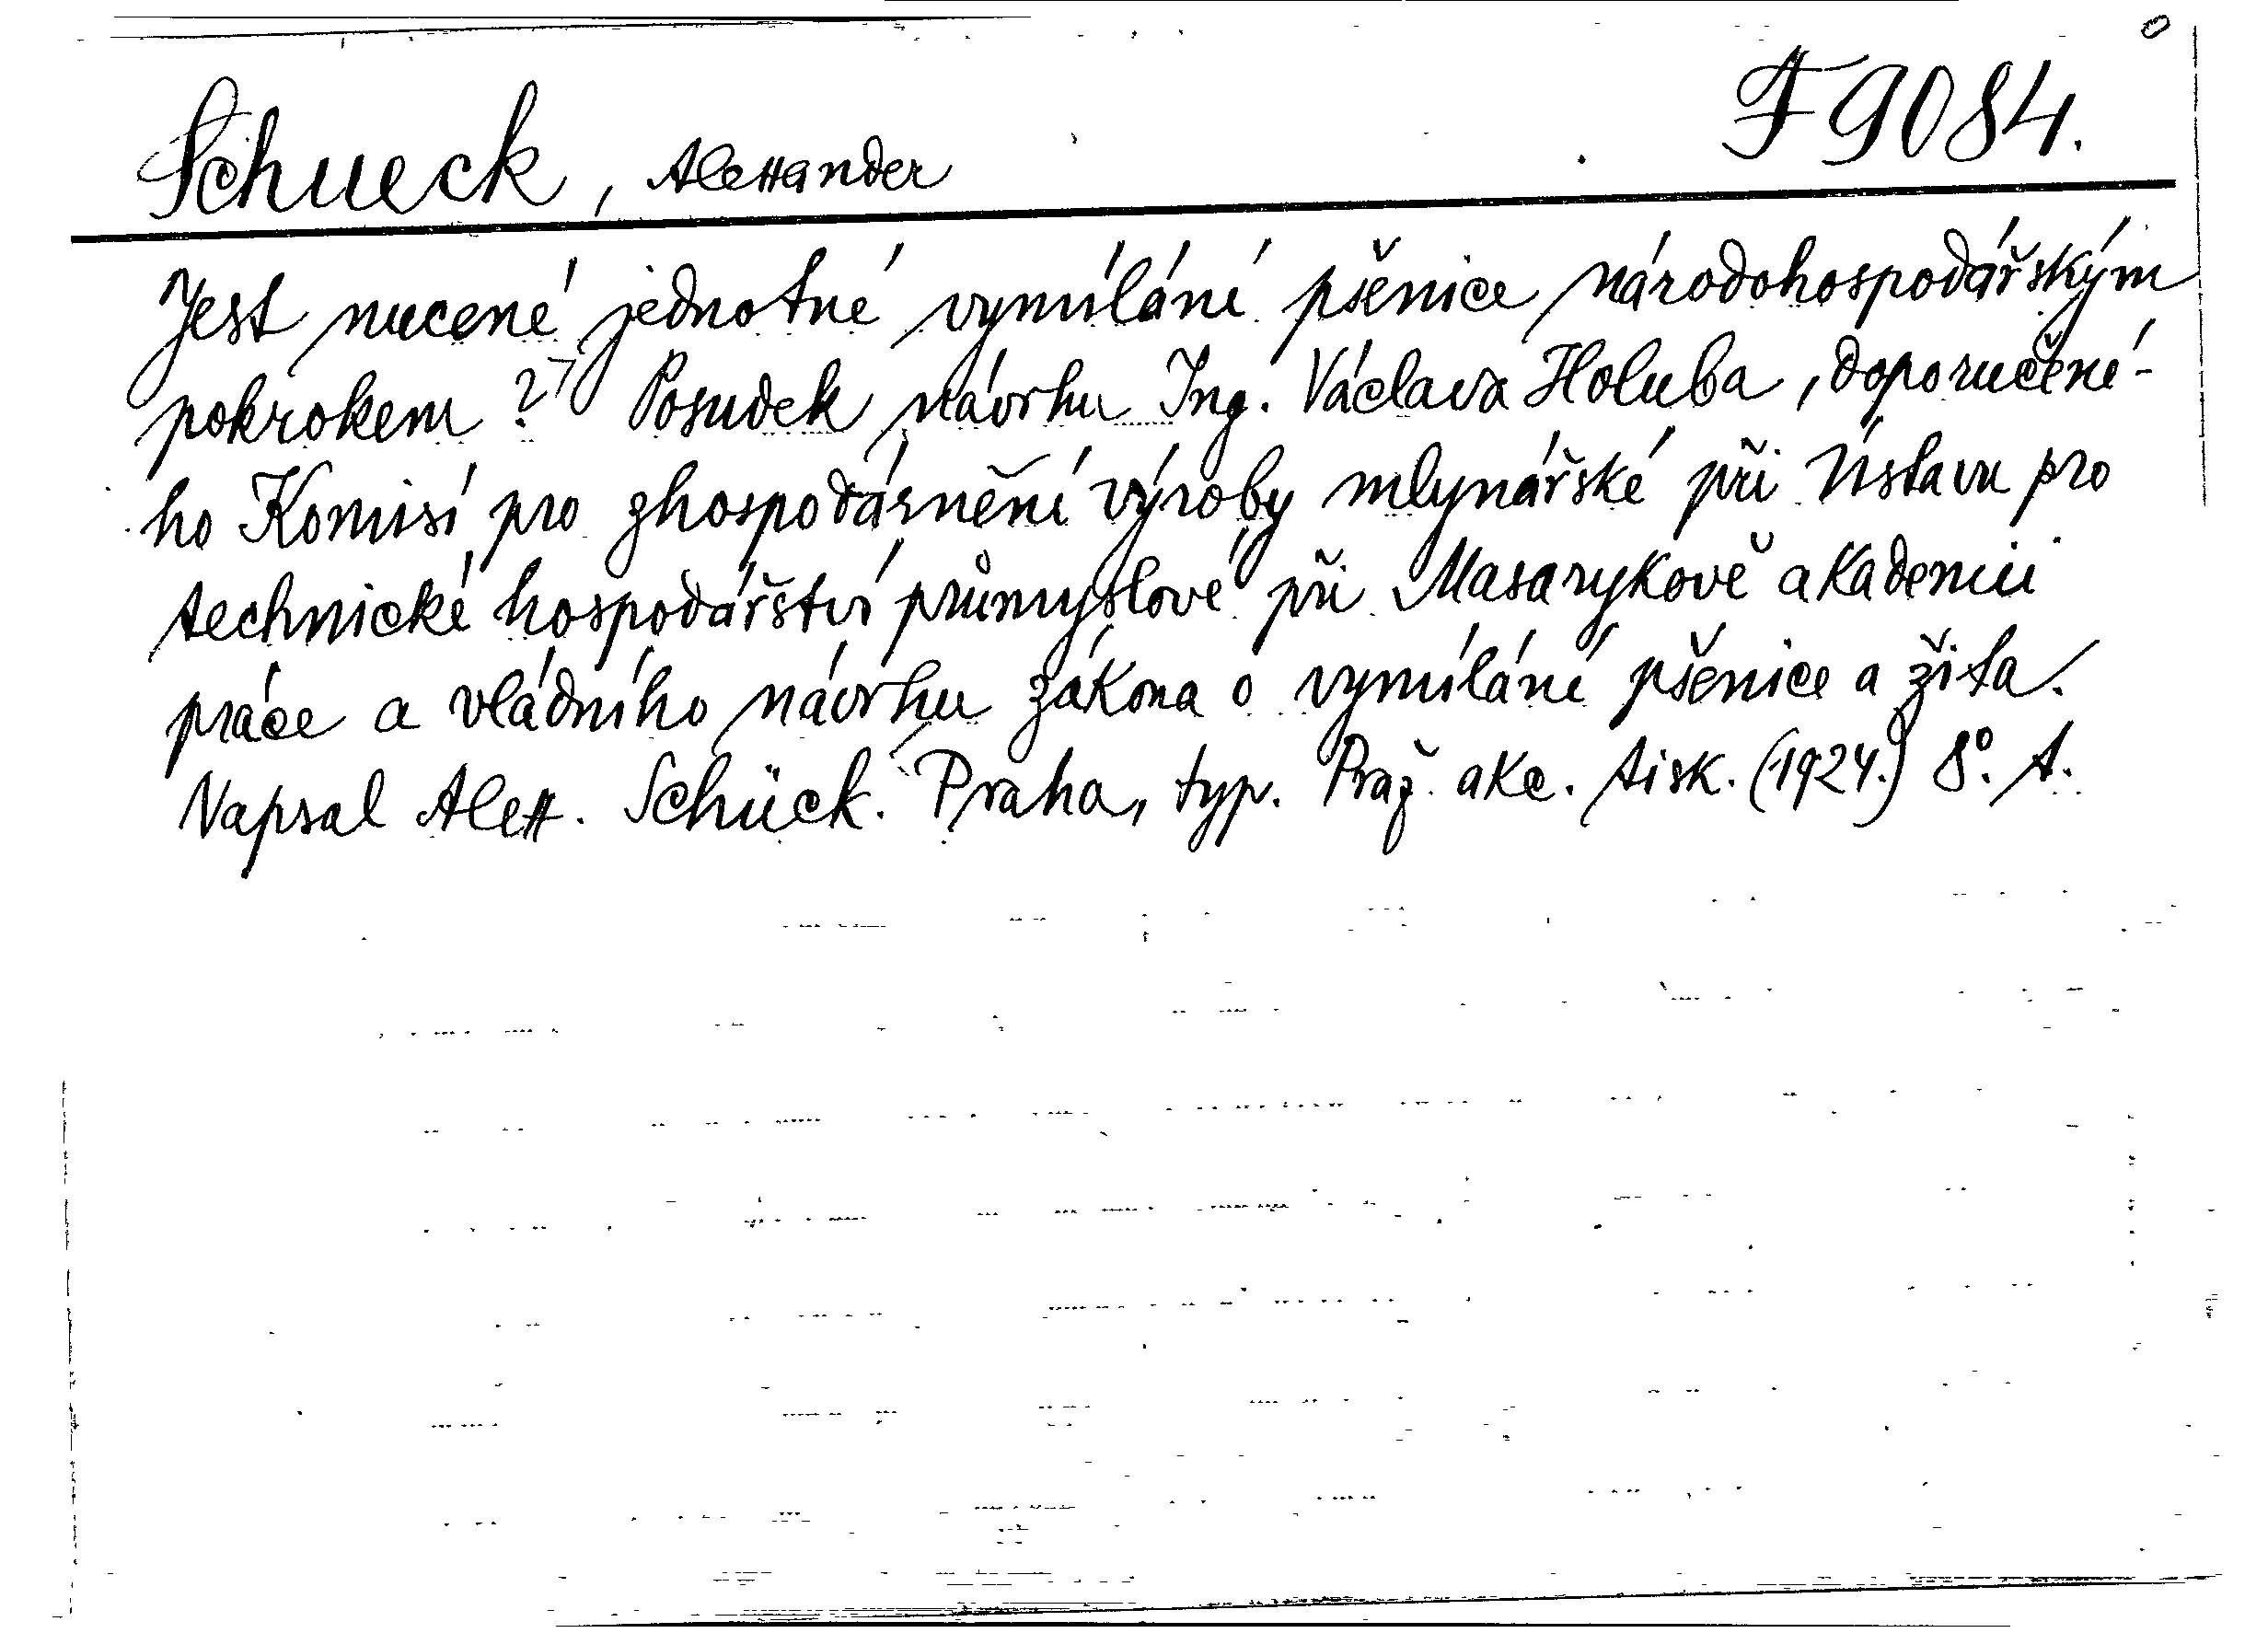 Schueck, Alexander
F 9084.
Jest nucené jednotné vymílání pšenice národohospodářským
pokrokem? Posudek návrhu Ing. Václava Holuba, doporučené-
ho Komisí pro zhospodárnění výroby mlynářské při Ústavu pro
technické hospodářství průmyslové při Masarykově akademii
práce a vládního návrhu zákona o vymílání pšenice a žita.
Napsal Alex. Schück. Praha, typ. Praž. akc. tisk. (1924.) 8°. A.